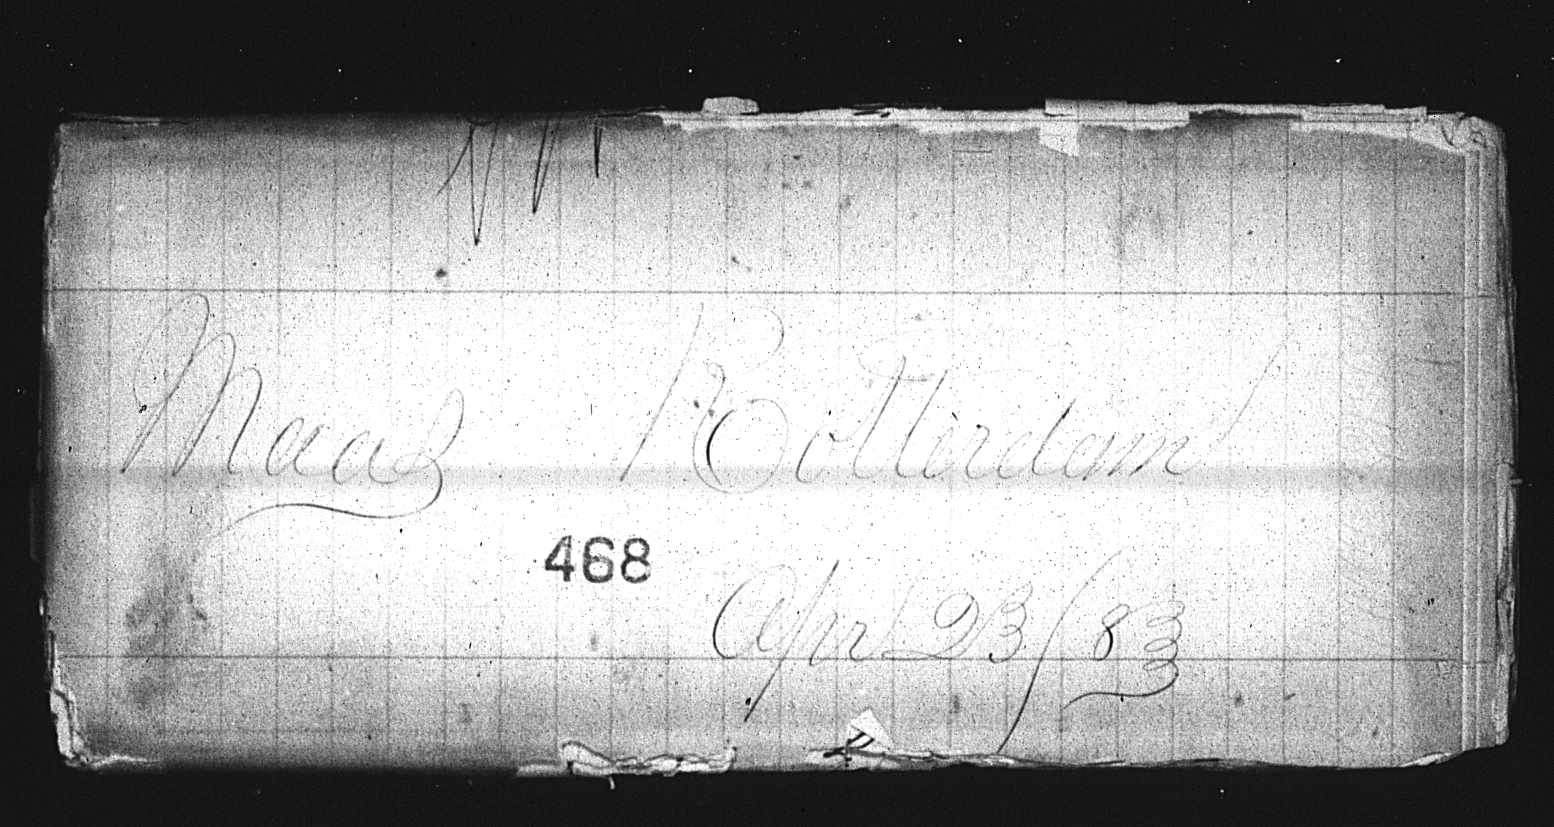 Maas Rotterdam
468
Apr 23/83